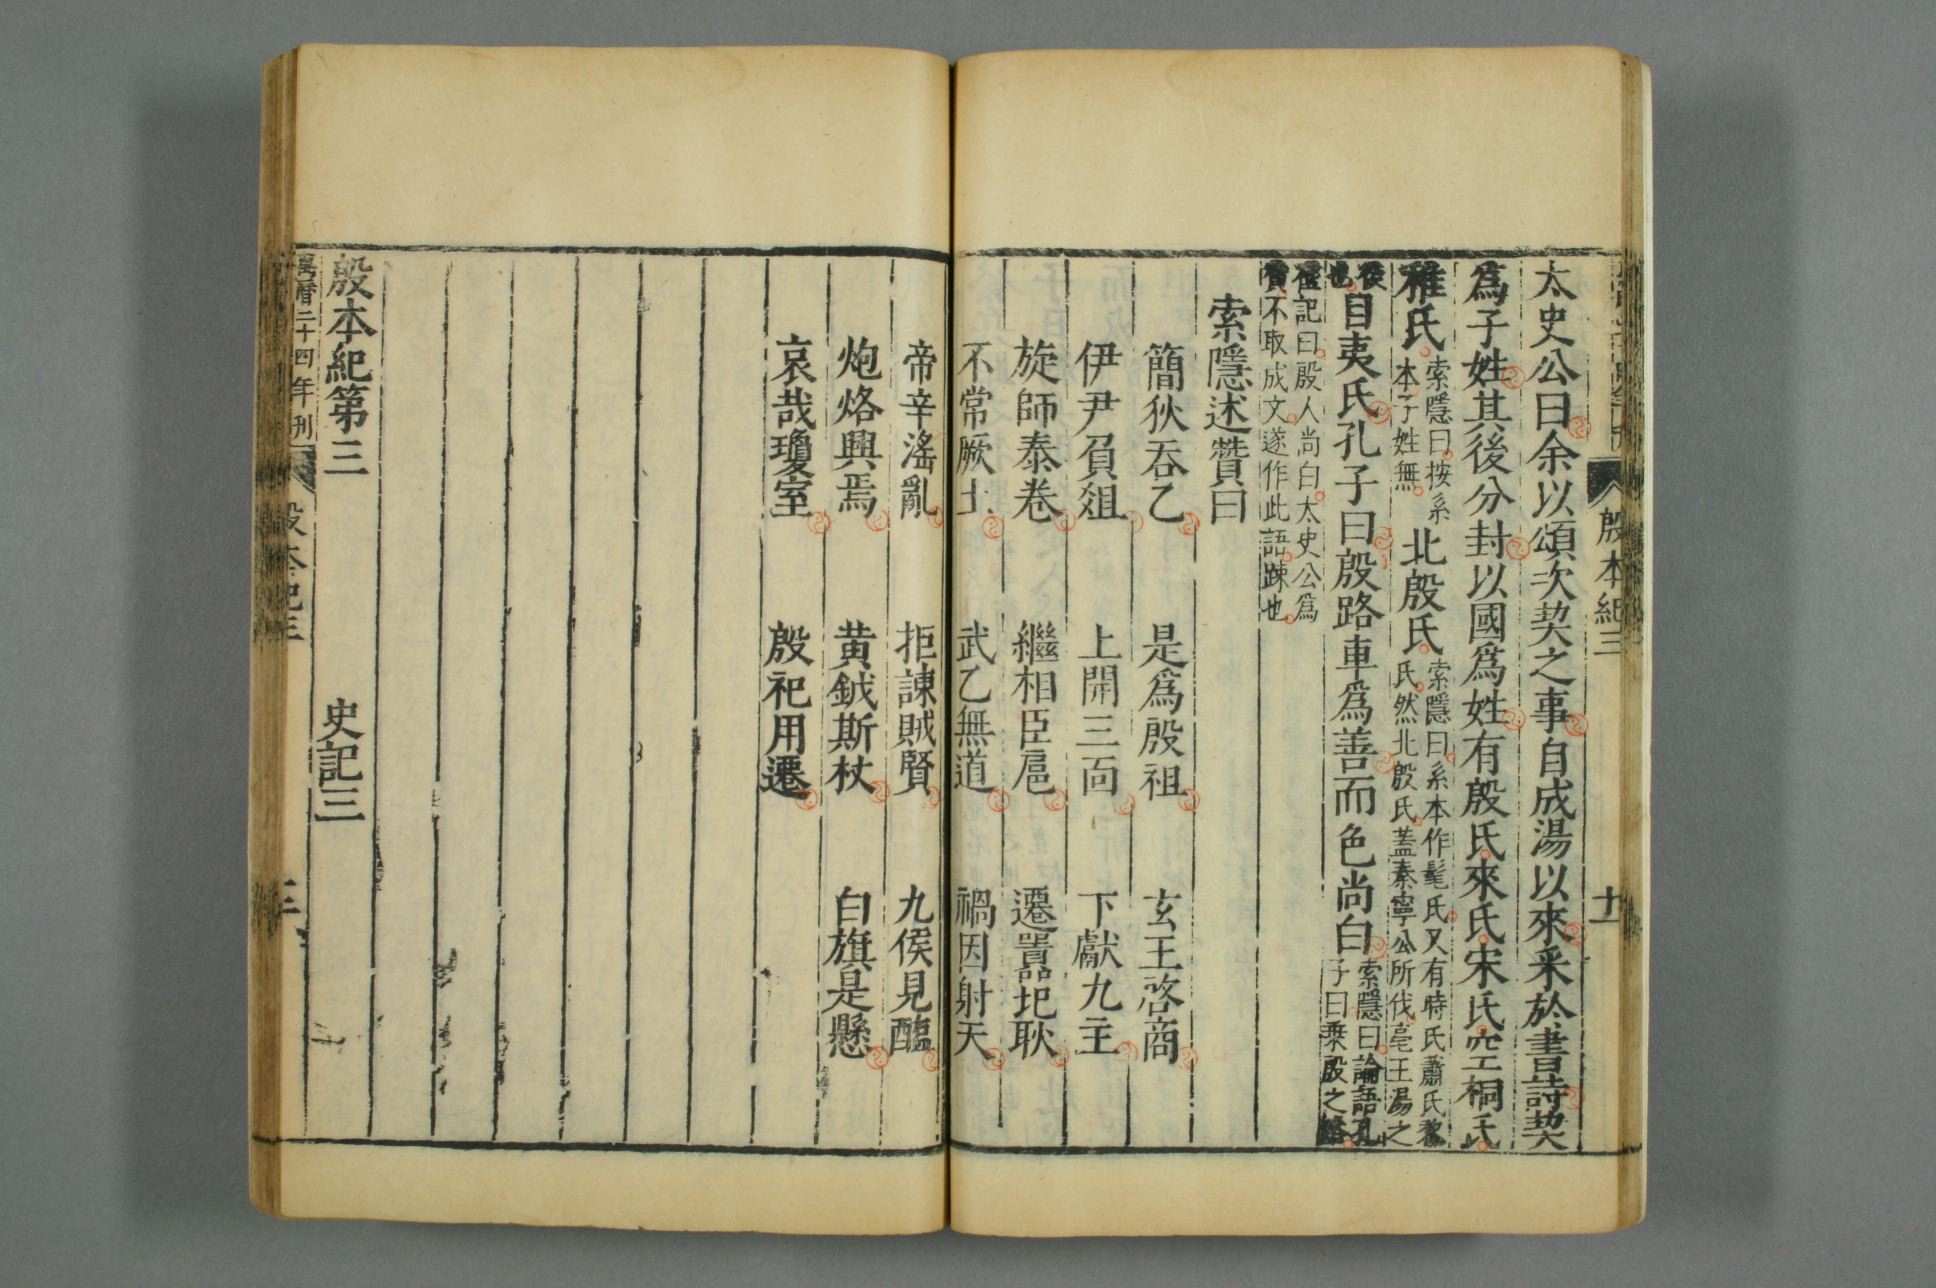 殷本紀三
十一
太史公曰余以頌次契之事自成湯以來采於書詩契
爲子姓其後分封以國爲姓有殷氏來氏宋氏空桐氏
稚氏索隱曰按系本子姓無北殷氏索隱曰系本作髦氏又有時氏蕭氏黎氏然北殷氏蓋秦寧公所伐亳王湯之
後也目夷氏孔子曰殷路車爲善而色尚白索隱曰論語孔子曰乗殷之輅
禮記曰殷人尚白太史公爲贊不取成文遂作此語踈也
索隱述贊曰
簡狄吞乙 是爲殷祖 玄王啓商
伊尹負俎 上開三面 下獻九主
旋師泰卷 繼相臣扈 遷嚻圯耿
不常厥土 武乙無道 禍因射天
帝辛滛亂 拒諫賊賢 九侯見醢
炮烙興焉 黄鉞斯杖 白旗是懸
哀哉瓊室 殷祀用遷
殷本紀第三 史記三
萬曆二十四年刊
殷本紀三